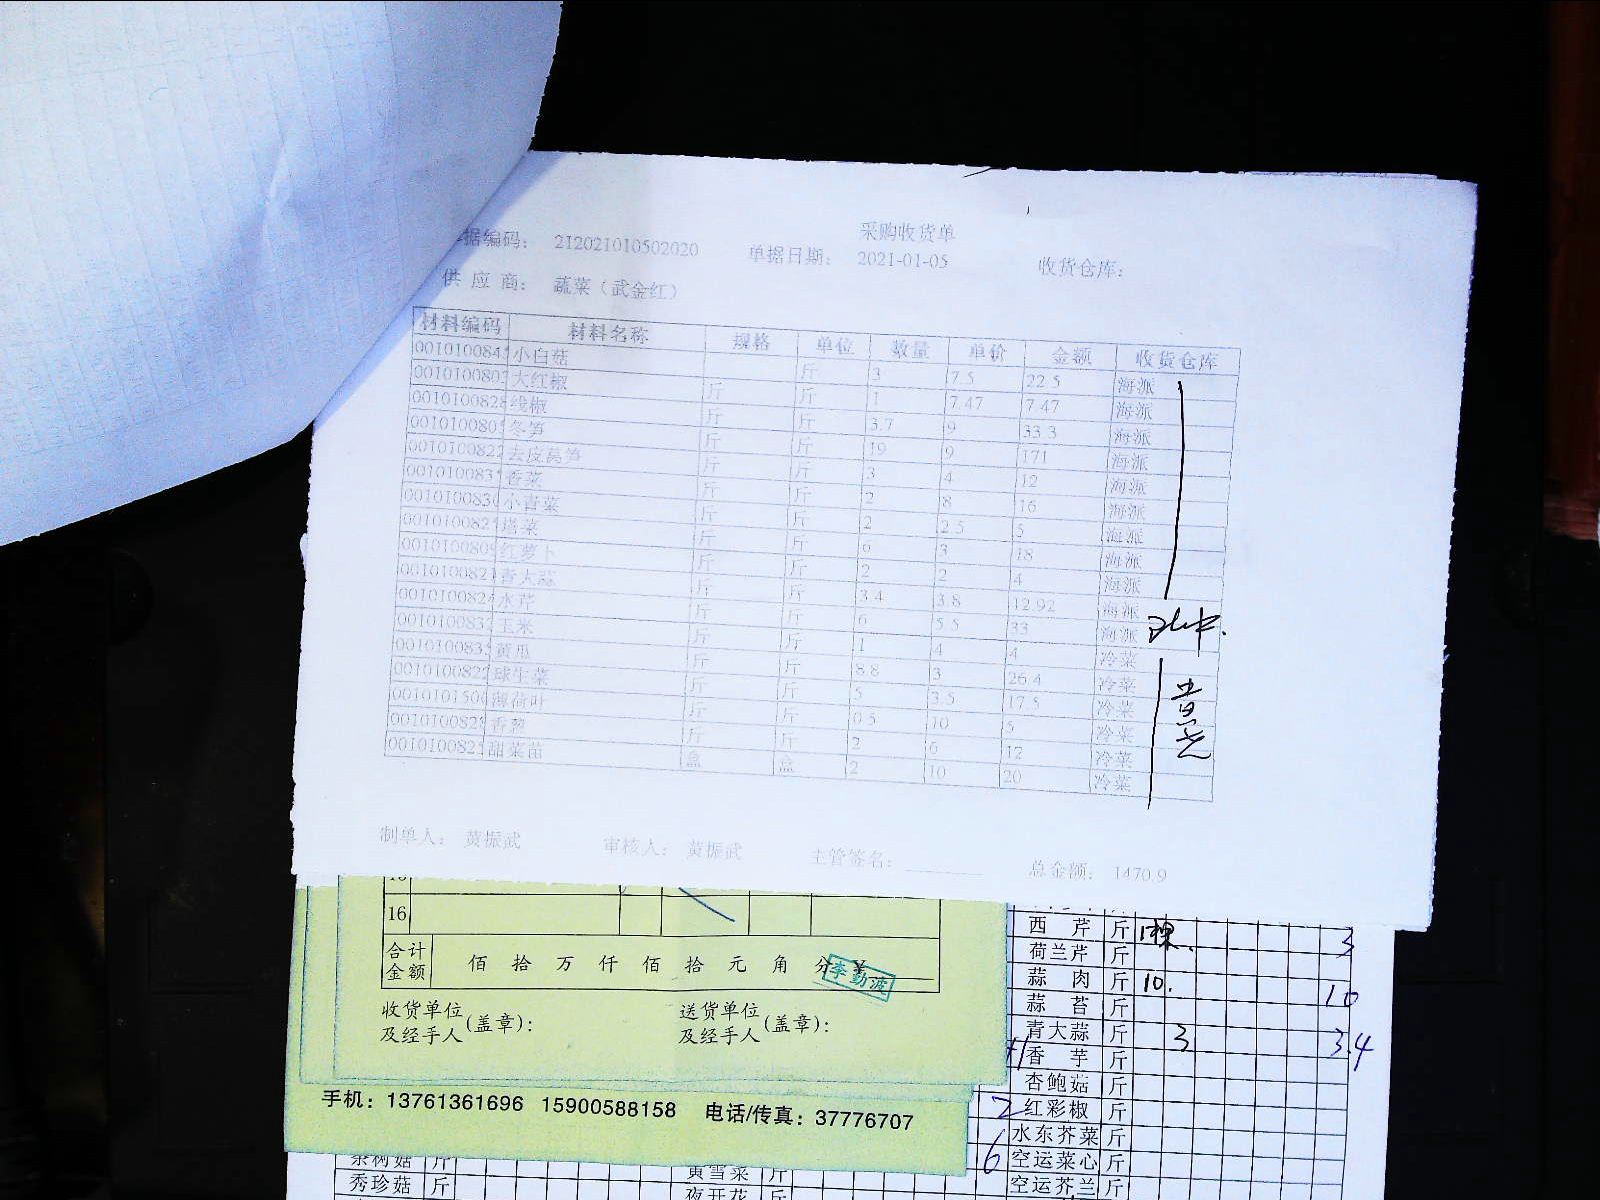 采购收货单
据编码： 212021010502020 单据日期： 2021-01-05 收货仓库：
供 应 商： 蔬菜（武金红）
材料编码 材料名称 规格 单位 数量 单价 金额 收货仓库
001010084 小白菇 斤 3 7.5 22.5 海派
001010080 大红椒 斤 斤 1 7.47 7.47 海派
001010082 线椒 斤 斤 3.7 9 33.3 海派
001010080 冬笋 斤 斤 19 9 171 海派
0010100822 去皮莴笋 斤 斤 3 4 12 海派
001010083 香菜 斤 斤 2 8 16 海派
001010083 小青菜 斤 斤 2 2.5 5 海派
001010082 塔菜 斤 斤 6 3 18 海派
001010080 红萝卜 斤 斤 2 2 4 海派
001010082 青大蒜 斤 斤 3.4 3.8 12.92 海派
001010082 水芹 斤 斤 6 5.5 33 海派
001010083 玉米 斤 斤 1 4 4 冷菜
001010083 黄瓜 斤 斤 8.8 3 26.4 冷菜
001010082 球生菜 斤 斤 5 3.5 17.5 冷菜
001010150 薄荷叶 斤 斤 0.5 10 5 冷菜
001010082 香葱 斤 斤 2 6 12 冷菜
001010082 甜菜苗 盒 盒 2 10 20 冷菜
制单人： 黄振武 审核人： 黄振武 主管签名： 总金额： 1470.9
16
合计金额 佰 拾 万 仟 佰 拾 元 角 分
李勤波
收货单位及经手人（盖章）： 送货单位及经手人（盖章）：
手机：13761361696 15900588158 电话/传真：37776707
西 芹 斤 3
荷兰芹 斤
蒜 肉 斤 10. 10
蒜 苔 斤
青大蒜 斤 3 3.4
香 芋 斤
杏鲍菇 斤
2 红彩椒 斤
水东芥菜 斤
6 空运菜心 斤
空运芥兰 斤
茶树菇 斤 黄雪菜 斤
秀珍菇 斤 夜开花 斤